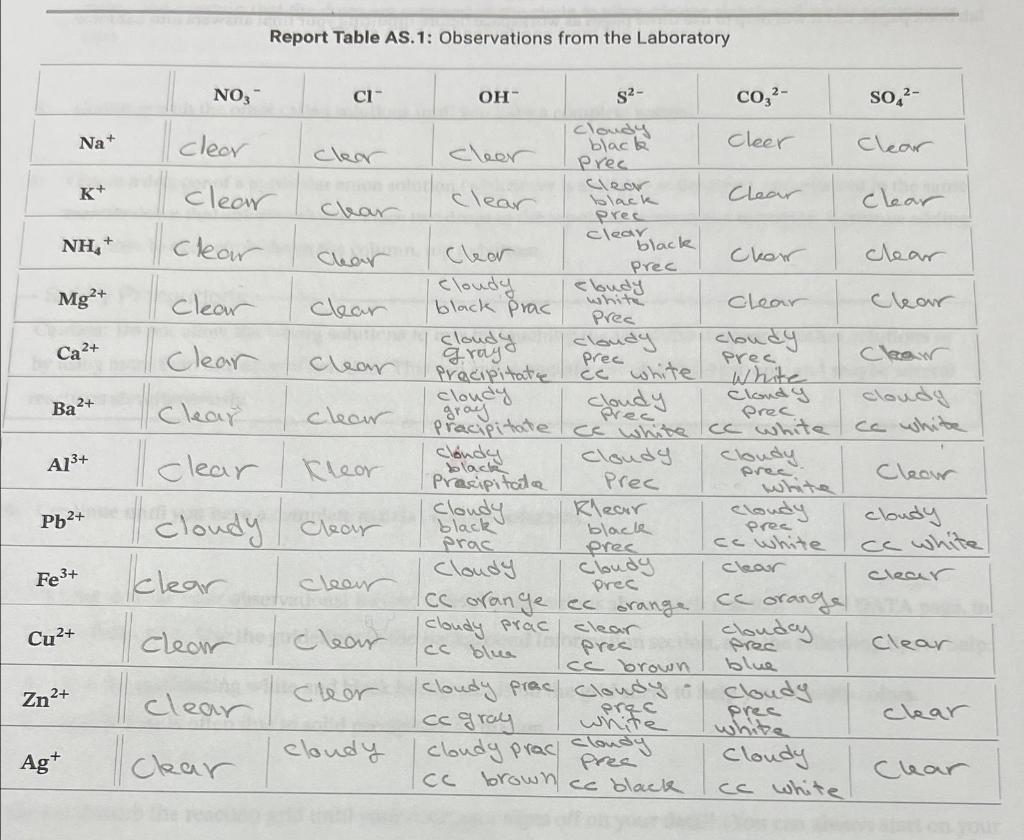 Report Table AS.1: Observations from the Laboratory
NO₃⁻ Cl⁻ OH⁻ S²⁻ CO₃²⁻ SO₄²⁻
Na⁺ clear clear clear cloudy black prec cleer clear
K⁺ clear clear clear clear black prec clear clear
NH₄⁺ clear clear clear clear black prec clear clear
Mg²⁺ clear clear cloudy black prac cloudy white prec clear clear
Ca²⁺ clear clear cloudy gray precipitate cloudy prec cc white cloudy prec white clear
Ba²⁺ clear clear cloudy gray precipitate cloudy prec cc white cloudy prec cc white cloudy cc white
Al³⁺ clear Klear cloudy black precipitate cloudy prec cloudy prec. white clear
Pb²⁺ cloudy clear cloudy black prac Klear black prec cloudy prec cc white cloudy cc white
Fe³⁺ clear clear cloudy cc orange cloudy prec cc orange clear cc orange clear
Cu²⁺ clear clear cloudy prac cc blue clear prec cc brown clouday prec blue clear
Zn²⁺ clear clear cloudy prac cc gray cloudy prec white cloudy prec white clear
Ag⁺ clear cloudy cloudy prac cc brown cloudy prec cc black cloudy cc white clear